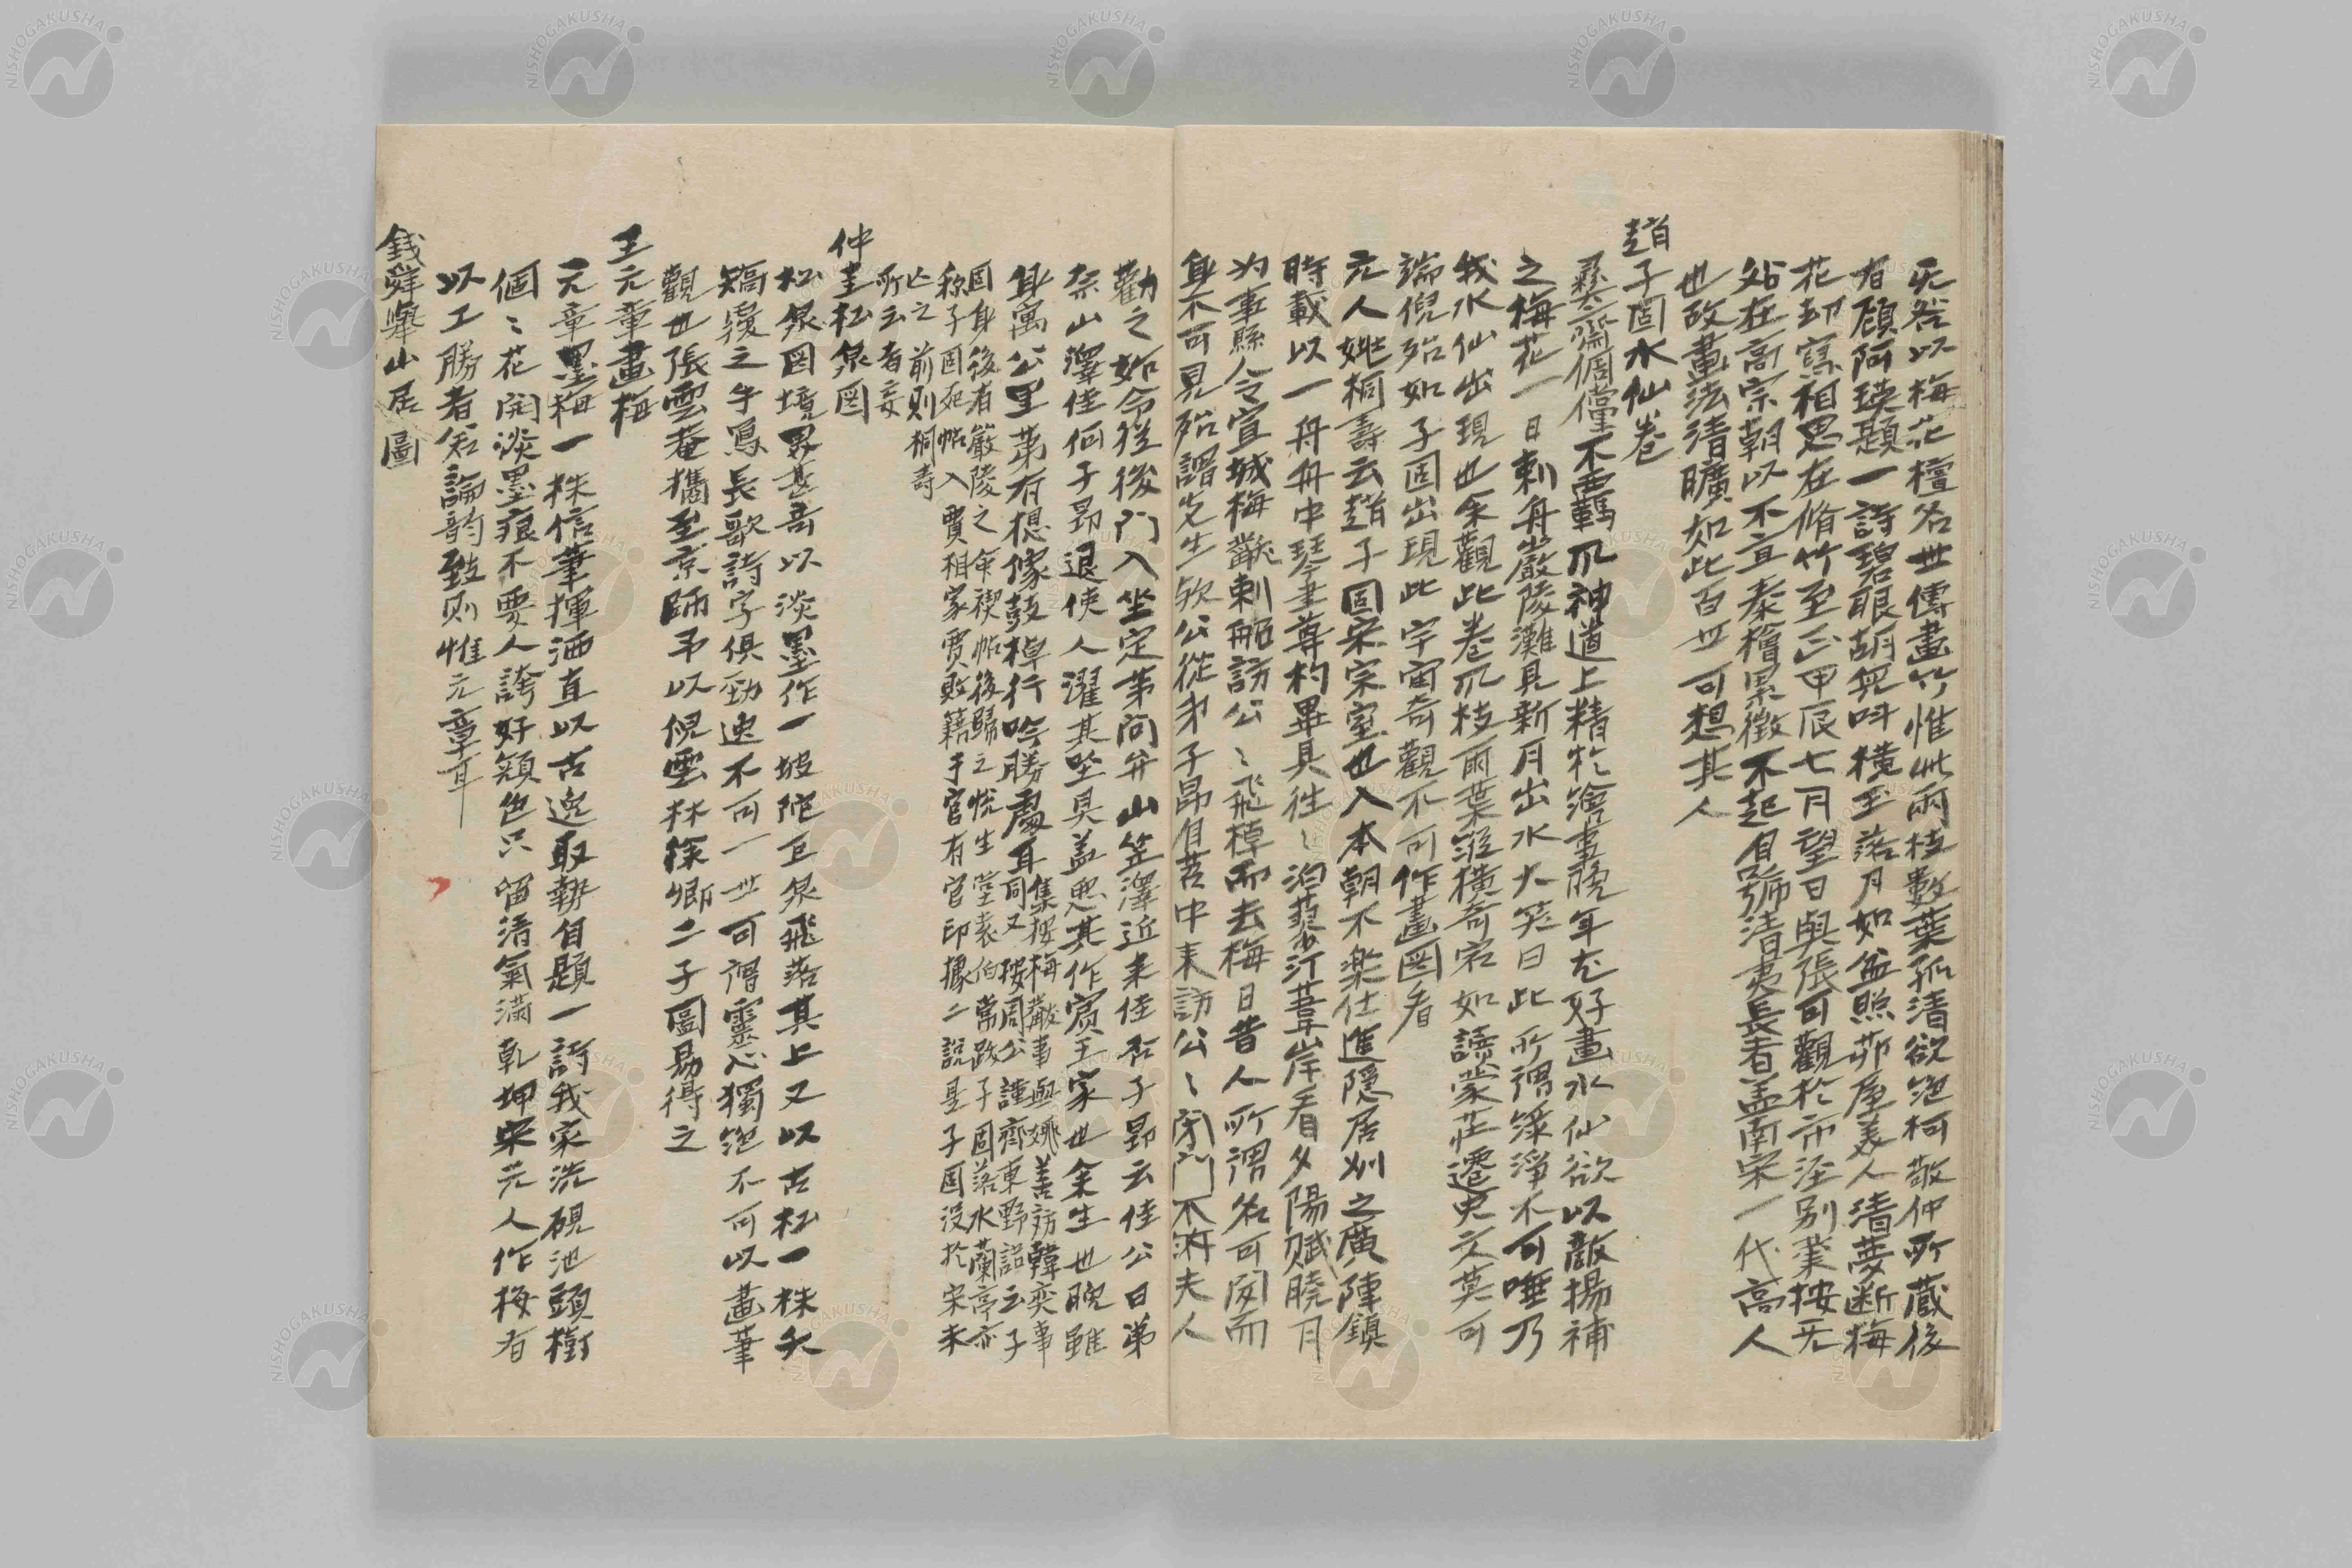 无咎以梅花擅名世傳畫竹惟此兩枝數葉孤清欲絶柯敬仲所藏後
有顧阿瑛題一詩碧眼胡兒叫橫玉落月如盆照茆屋美人清夢斷梅
花却寫相思在脩竹至正甲辰七月望日與張可觀於
別業按无
咎在高宗朝以不直秦檜累徵不起自號清夷長者盖南宋一代高人
也故畫法清曠如此百世可想其人
趙子固水仙卷
彞齋倜儻不羈爪神道上精於繪事晚年尤好畫水仙欲以敵揚補
之梅花一日刺舟嚴陵灘見新月出水大笑曰此所謂綠淨不可唾乃
我水仙出現也余觀此卷爪枝雨葉縱橫奇宕如讀蒙莊遷史文莫可
端倪殆如子固出現此宇宙奇觀不可作畫図看
元人姚桐壽云趙子固宋宗室也入本朝不樂仕進隱居州之廣陳鎮
時載以一舟舟中琴書尊杓畢具往〻泊蓼汀葦岸看夕陽賦曉月
为事縣令宣城梅黻刺船訪公〻飛棹而去梅曰昔人所謂名可聞而
身不可見殆謂先生欤公從弟子昂自苕中来訪公〻閉門不納夫人
勸之始令從後門入坐定第问弁山笠澤近来佳否子昂云佳公曰弟
奈山澤佳何子昂退使人濯其坐具盖惡其作賓王家也余生也晚雖
身寓公里第有想像鼓棹行吟勝處耳
集按梅黻事與姚善訪韓奕事
同又按周公謹齊東野語云子
固身後有嚴陵之命禊帖後歸之悦生堂袁伯常跋子固落水蘭亭亦
稱子固死帖入賈相家賈敗籍于官有官印據二說是子固没於宋未
亡之前則桐壽
所云者妄
仲圭松泉図
松泉図境界甚奇以淡墨作一坡陀豆泉飛落其上又以古松一株夭
矯覆之午馬長歌詩字俱勁速不可一世可謂靈心獨絶不可以畫筆
觀也張雲菴攜至京師予以倪雲林徐
二子圖易得之
王元章畫梅
元章墨梅一株信筆揮洒直以古逸取勢自題一詩我家洗硯池頭樹
個〻花開淡墨痕不要人誇好顏色只留清氣滿乾坤宋元人作梅有
以工勝者若論韵致则惟元章耳
錢舜舉山居圖